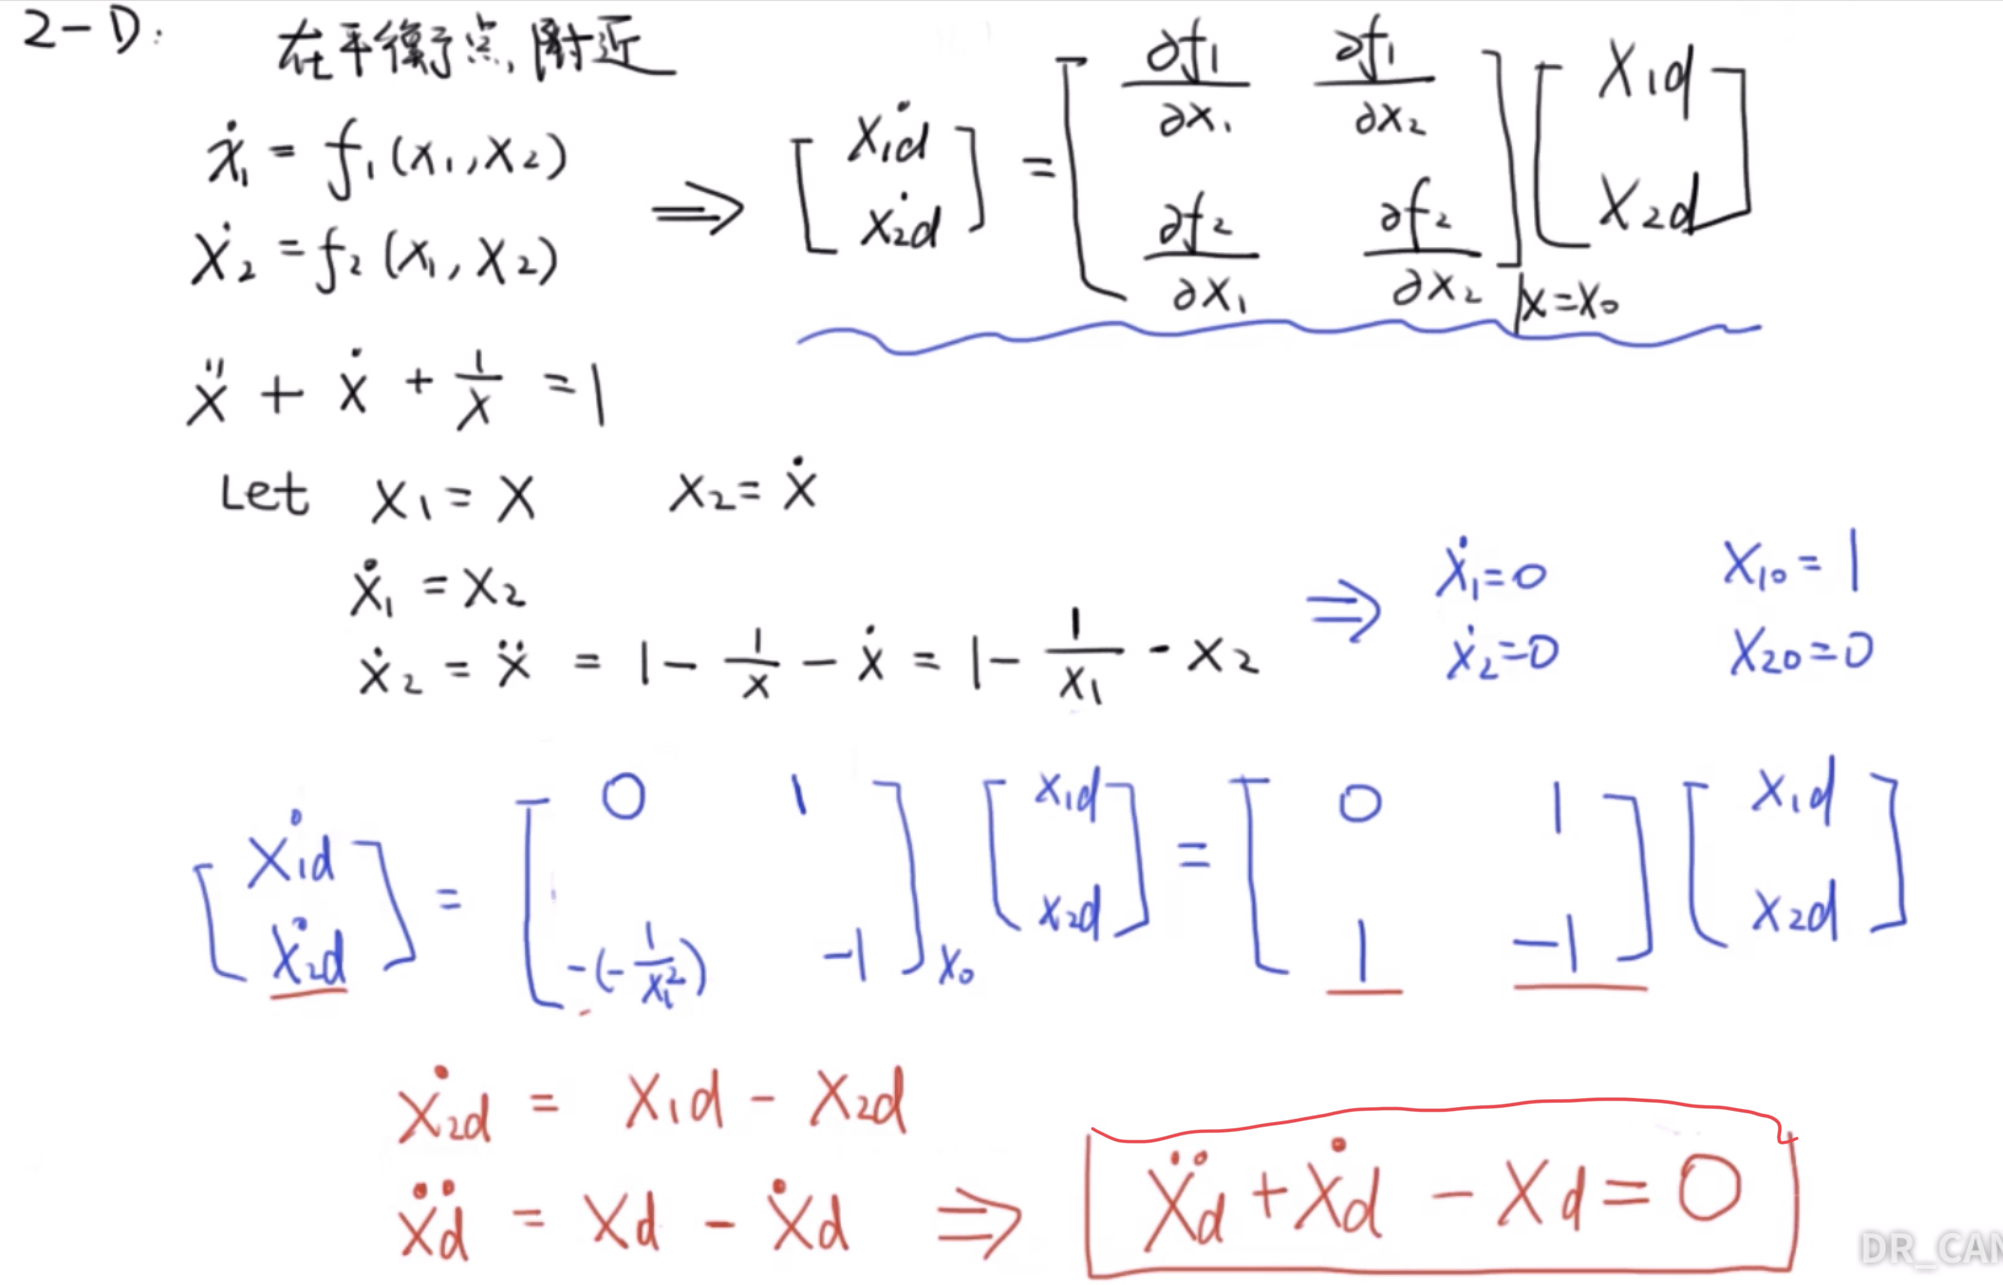 2-D: 在平衡点附近
ẋ₁ = f₁(x₁, x₂)
ẋ₂ = f₂(x₁, x₂)
⇒ [ẋ₁d; ẋ₂d] = [∂f₁/∂x₁ ∂f₁/∂x₂; ∂f₂/∂x₁ ∂f₂/∂x₂]|x=x₀ [x₁d; x₂d]
ẍ + ẋ + 1/x = 1
Let x₁ = x x₂ = ẋ
ẋ₁ = x₂
ẋ₂ = ẍ = 1 - 1/x - ẋ = 1 - 1/x₁ - x₂
⇒ ẋ₁ = 0 x₁₀ = 1
ẋ₂ = 0 x₂₀ = 0
[ẋ₁d; ẋ₂d] = [0 1; -(-1/x₁²) -1]x₀ [x₁d; x₂d] = [0 1; 1 -1] [x₁d; x₂d]
ẋ₂d = x₁d - x₂d
ẍd = xd - ẋd ⇒ ẍd + ẋd - xd = 0
DR_CAN